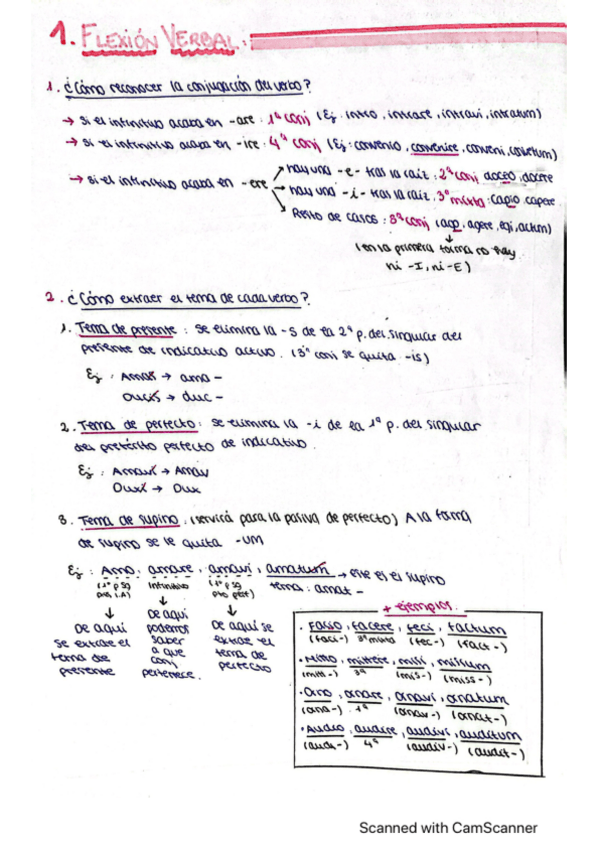 1. FLEXIÓN VERBAL:
1. ¿Cómo reconocer la conjugación del verbo?
→ si el infinitivo acaba en -are : 1ª conj (Ej: intro, intrare, intravi, intratum)
→ si el infinitivo acaba en -ire : 4ª conj (Ej: convenio, convenire, conveni,
→ si el infinitivo acaba en -ere
→ hay una -e- tras la raíz : 2ª conj doceo, docere
→ hay una -i- tras la raíz : 3ª mixta : capio, capere
Resto de casos : 3ª conj (ago, agere, egi, actum)
↓
(en la primera forma no hay
ni -I, ni -E)
2. ¿Cómo extraer el tema de cada verbo?
1. Tema de presente : se elimina la -s de la 2ª p. del singular del
presente de indicativo activo. (3ª conj se quita -is)
Ej : Amas → ama -
Ducis → duc -
2. Tema de perfecto : se elimina la -i de la 1ª p. del singular
del pretérito perfecto de indicativo.
Ej : Amavi → Amav
Duxi → Dux
3. Tema de supino : (servirá para la pasiva de perfecto) A la forma
de supino se le quita -UM
Ej : Amo, amare, amavi, amatum → este es el supino
tema : amat -
(1ª p sg
pres I.A)
Infinitivo
(1ª p sg
pto perf)
↓ ↓ ↓
De aquí
se extrae el
tema de
presente
De aquí
podemos
saber
a que
conj
pertenece.
De aquí se
extrae el
tema de
perfecto
+ ejemplos.
· Facio, facere, feci, factum
(faci-) 3ª mixta (fec-) (fact-)
· Mitto, mittere, misi, missum
(mitt-) 3ª (mis-) (miss-)
· Orno, ornare, ornavi, ornatum
(orna-) 1ª (ornav-) (ornat-)
· Audio, audire, audivi, auditum
(audi-) 4ª (audiv-) (audit-)
Scanned with CamScanner